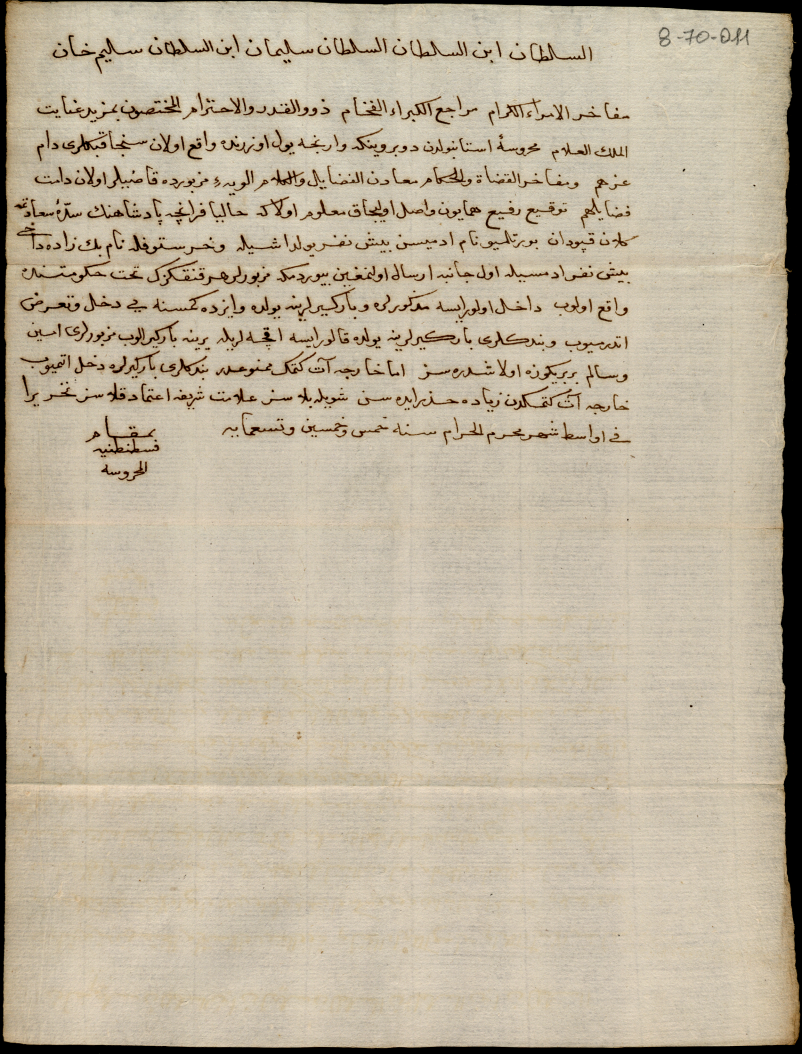 8-70-011
السلطان ابن السلطان السلطان سليمان ابن السلطان سليم خان
مفاخر الامراء الكرام مراجع الكبراء الفخام ذوو القدر والاحترام المختصون بمزيد عنايت
الملك العلام محروسهٔ استانبولدن دوبروينكه وارنجه يول اوزرنده واقع اولان سنجاقبكلرى دام
عزهم ومفاخر القضاة والحكام معادن الفضايل والكلام الويهٔ مزبورده قاضيلر اولان دامت
فضايلهم توقيع رفيع همايون واصل اوليجاق معلوم اولا كه حاليا فرانچه پادشاهنك سدهٔ سعادتمه
كلان قپودان بورتلميو نام ادميسن بيش نفر يولداشيله وخرستوفله نام بك زاده داخى
بيش نفر ادمسيله اول جانبه ارسال اولنمغين بيوردمكه مزبورلر هر قنقكزك تحت حكومتنده
واقع اولوب داخل اولورلرايسه مذكورلره وباركيرلرينه يولده وايزده كمسنه يى دخل وتعرض
اتدرميوب وبندكلرى باركيرلرينه يولده قالورايسه اقچه لريله يرينه باركير الوب مزبورلرى امين
وسالم بربريكوزه اولاشدره سز اما خارجه آت كتمك ممنوعدر بندكلرى باركيرلره دخل اتميوب
خارجه آت كتمكدن زياده حذر ايده سن شويله بلاسز علامت شريفه اعتماد قلاسز تحريرا
فى اواسط شهر محرم الحرام سنه خمس وخمسين وتسعمايه
بمقام
قسطنطنيه
المحروسه